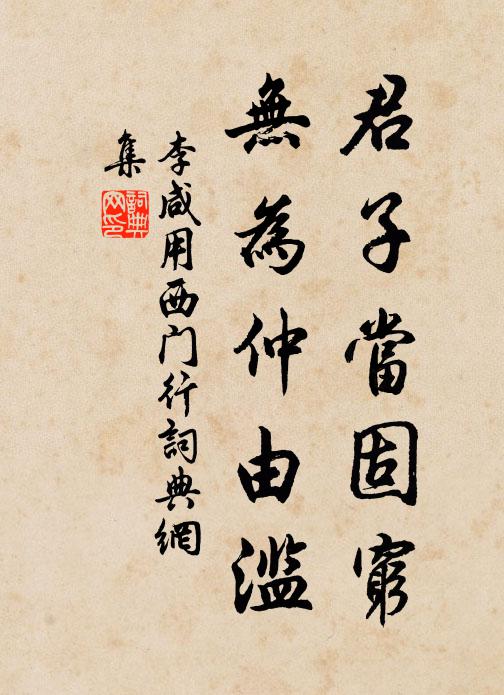 君子當固窮
無為仲由濫
李咸用西门行詞典網
集
詞典网印